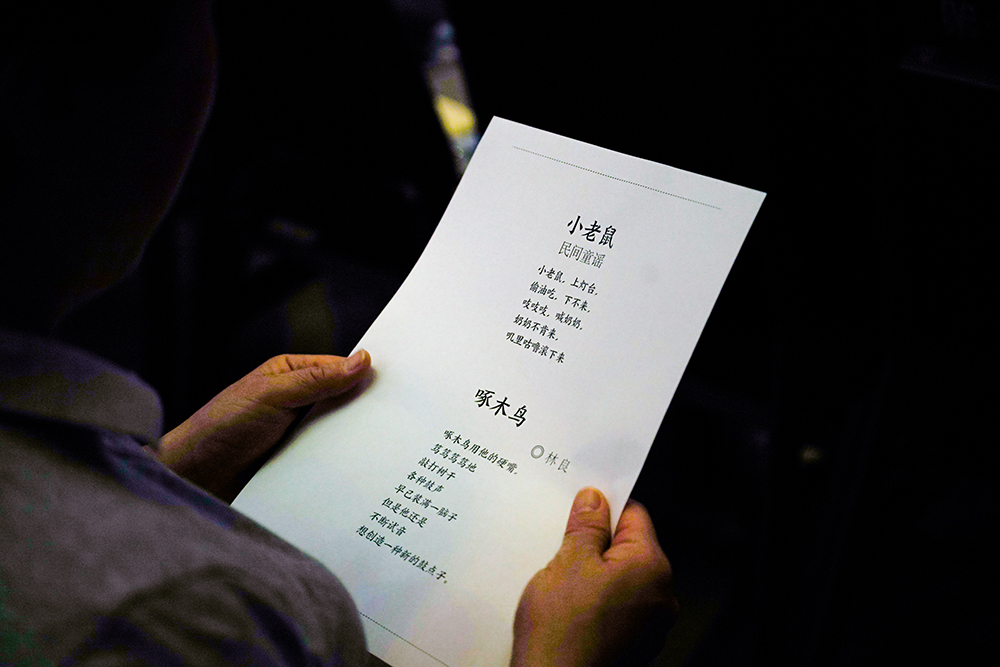 小老鼠
民间童谣
小老鼠，上灯台，
偷油吃，下不来，
吱吱吱，喊奶奶，
奶奶不肯来，
叽里咕噜滚下来
啄木鸟
◎林良
啄木鸟用他的硬嘴，
笃笃笃笃地
敲打树干
各种鼓声
早已装满一脑子
但是他还是
不断试音
想创造一种新的鼓点子。